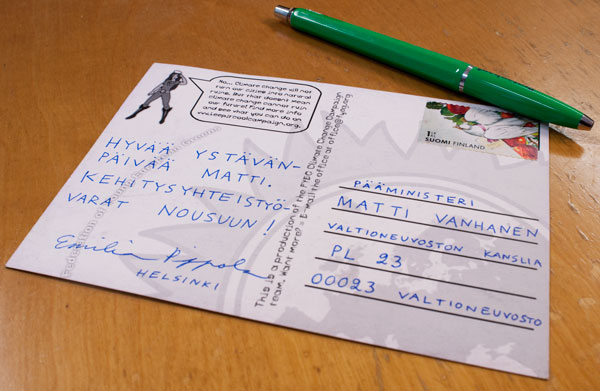 No... Climate change will not
turn our cities into natural
ruins. But that doesn't mean
climate change cannot ruin
our future! Find more info
and see what you can do on
HYVÄÄ YSTÄVÄN-
PÄIVÄÄ MATTI.
KEHITYSYHTEISTYÖ-
VARAT NOUSUUN!
Emilia
HELSINKI
This is a production of the FYEG Climate Change Campaign
team. Want more? - E-Mail the office at office@fyeg.org
1
SUOMI FINLAND
PÄÄMINISTERI
MATTI VANHANEN
VALTIONEUVOSTON KANSLIA
PL 23
00023 VALTIONEUVOSTO